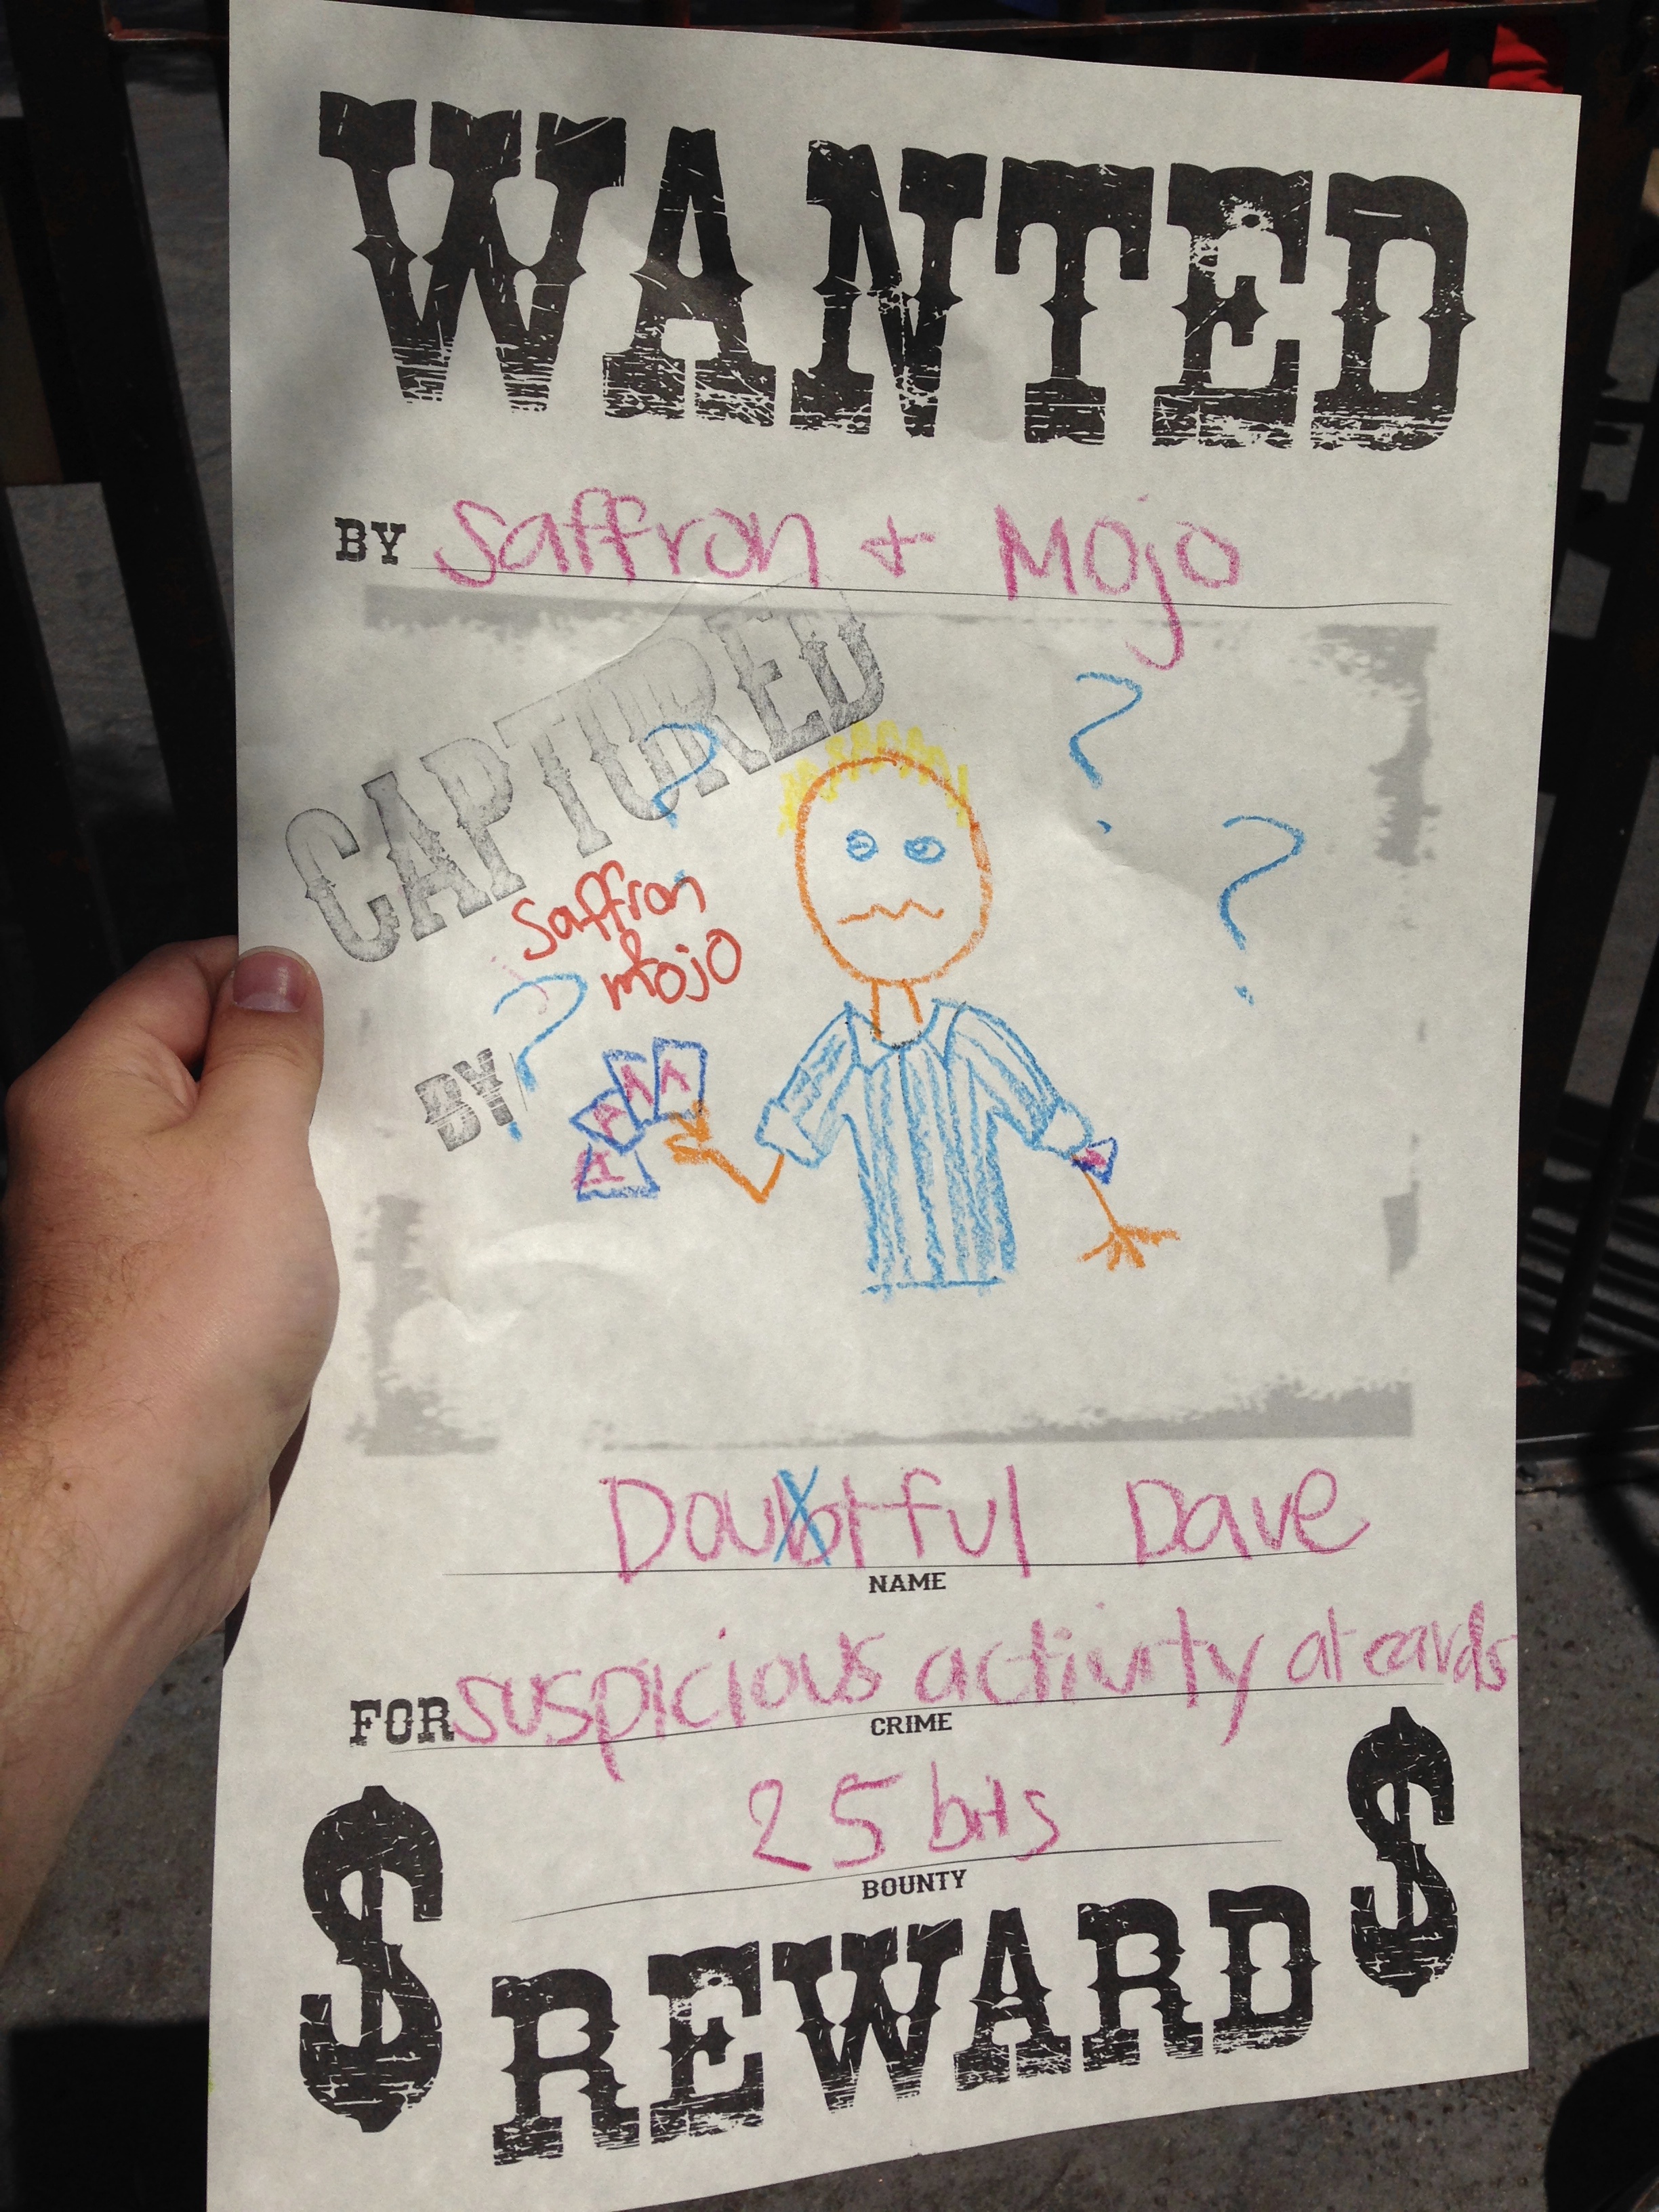 WANTED
BY Saffron + Mojo
CAPTURED
Saffron
& Mojo
BY
A A A A
A
Doubtful Dave
NAME
FOR suspicious activity at cards
CRIME
25 bits
BOUNTY
$ REWARD $